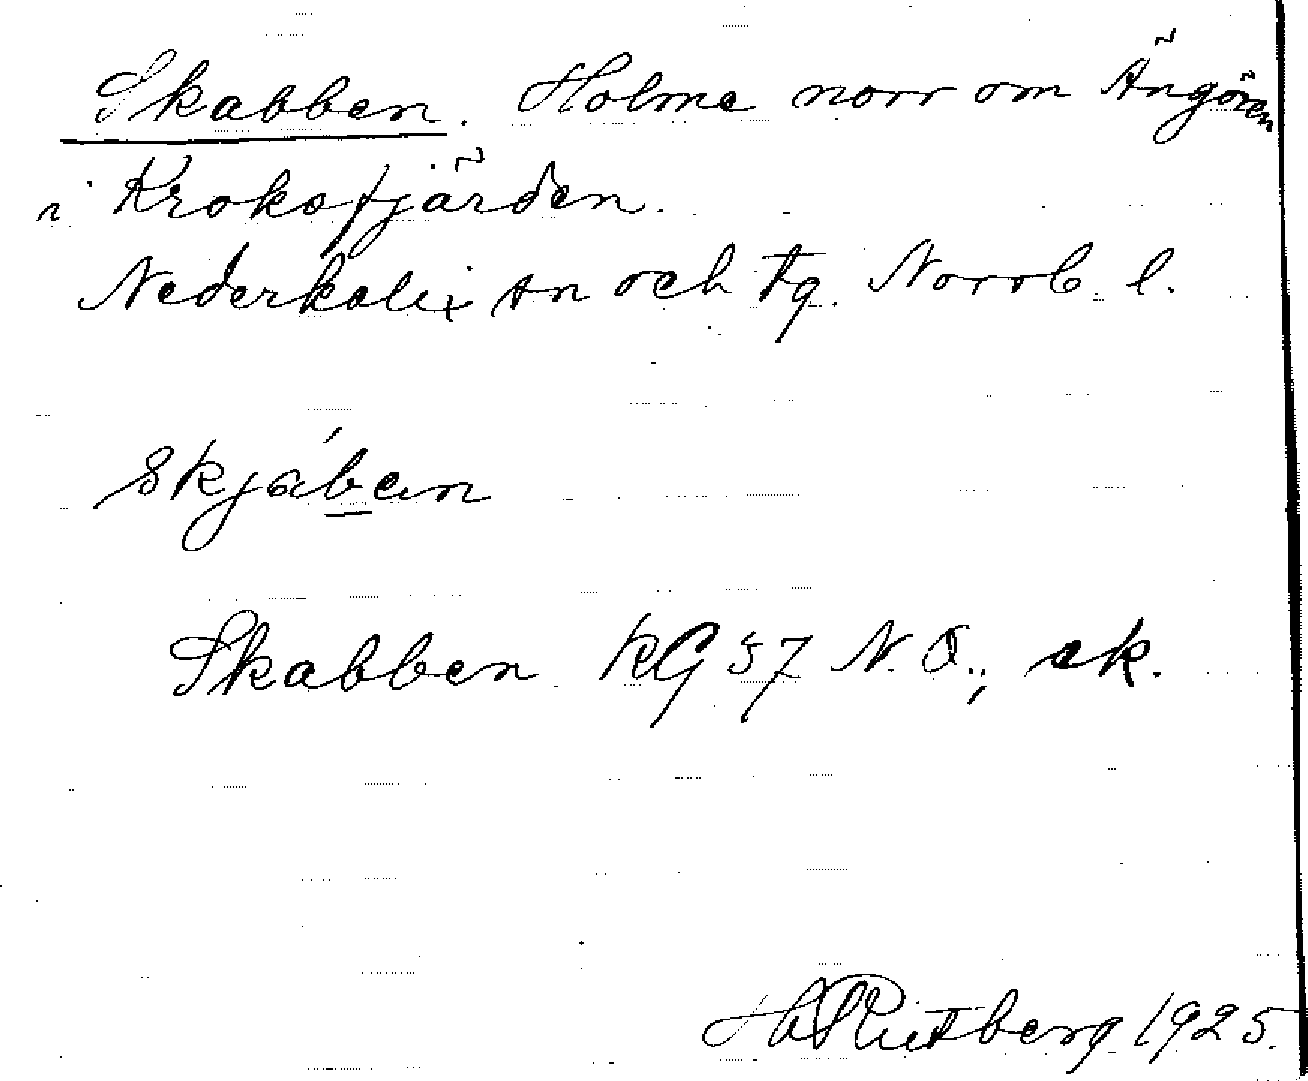 Skabben. Holme norr om Ängören
i Kroksfjärden.
Nederkalix sn och tg. Norrb. l.
skjáben
Skabben KG 57 N.O., ek.
Rutberg 1925.